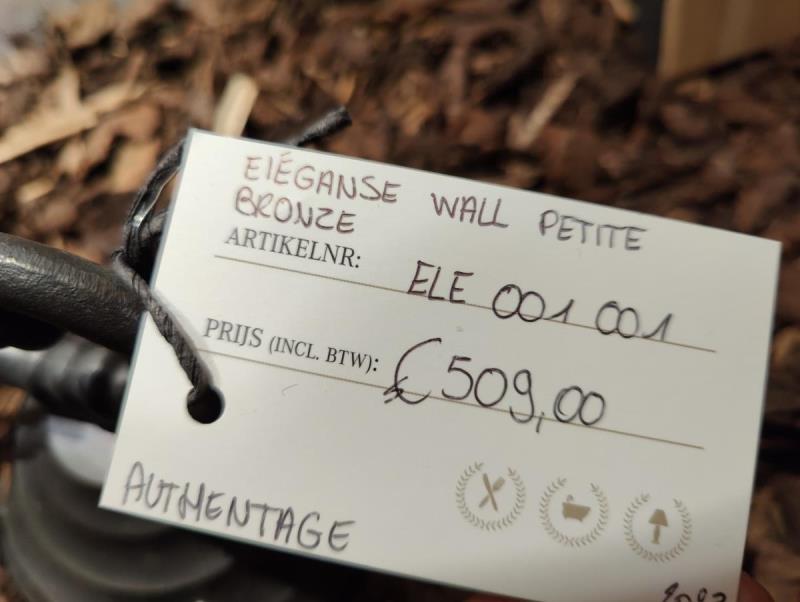 ElÉGANSE WALL PETITE
BRONZE
ARTIKELNR: ELE 001 001
PRIJS (INCL. BTW): €509,00
AUTHENTAGE